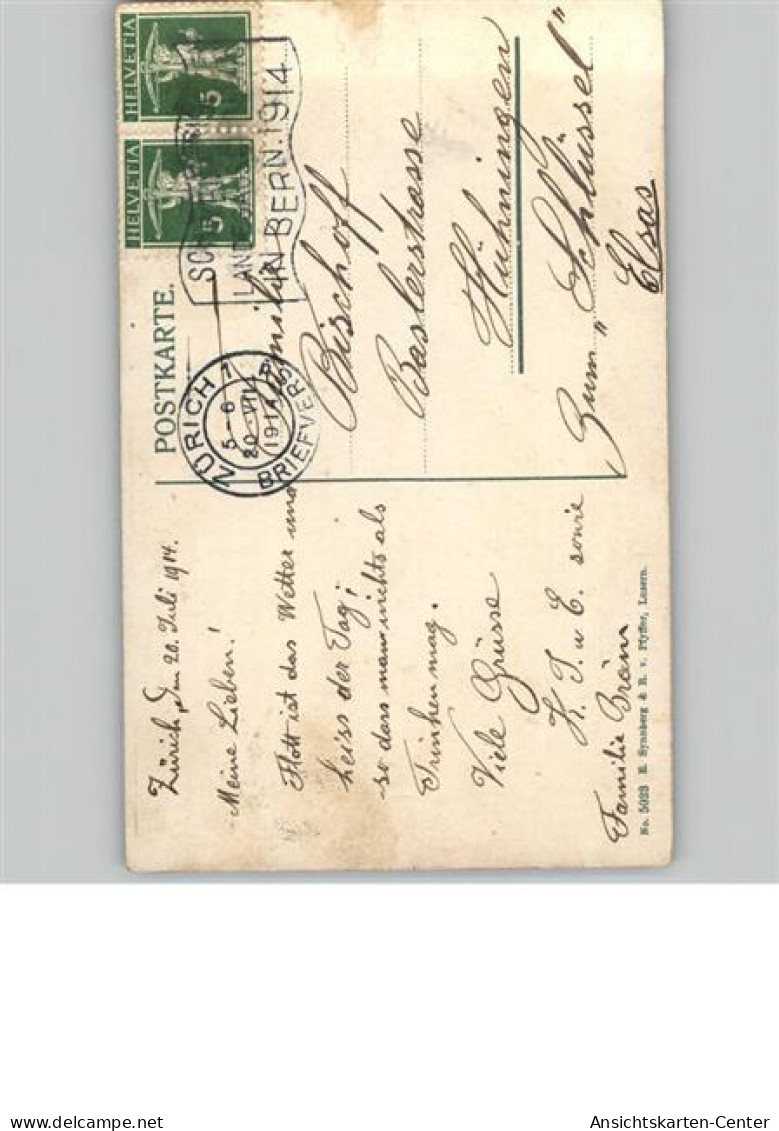 POSTKARTE.
HELVETIA
5
HELVETIA
5
IN BERN. 1914
ZÜRICH 1
5-6
20 VII
1914
BRIEFVERS
Zürich, den 20. Juli 1914.
Meine Lieben!
Flott ist das Wetter und
heiss der Tag!
so dass man nichts als
Trinken mag.
Viele Grüsse
K. T. u E. sowie
Familie
Familie
Bischoff
Baslerstrasse
Hühningen
Zum „Schlüssel"
Elsas
No. 5023 E. Synnberg & R. v. Pfyffer, Luzern.
Ansichtskarten-Center